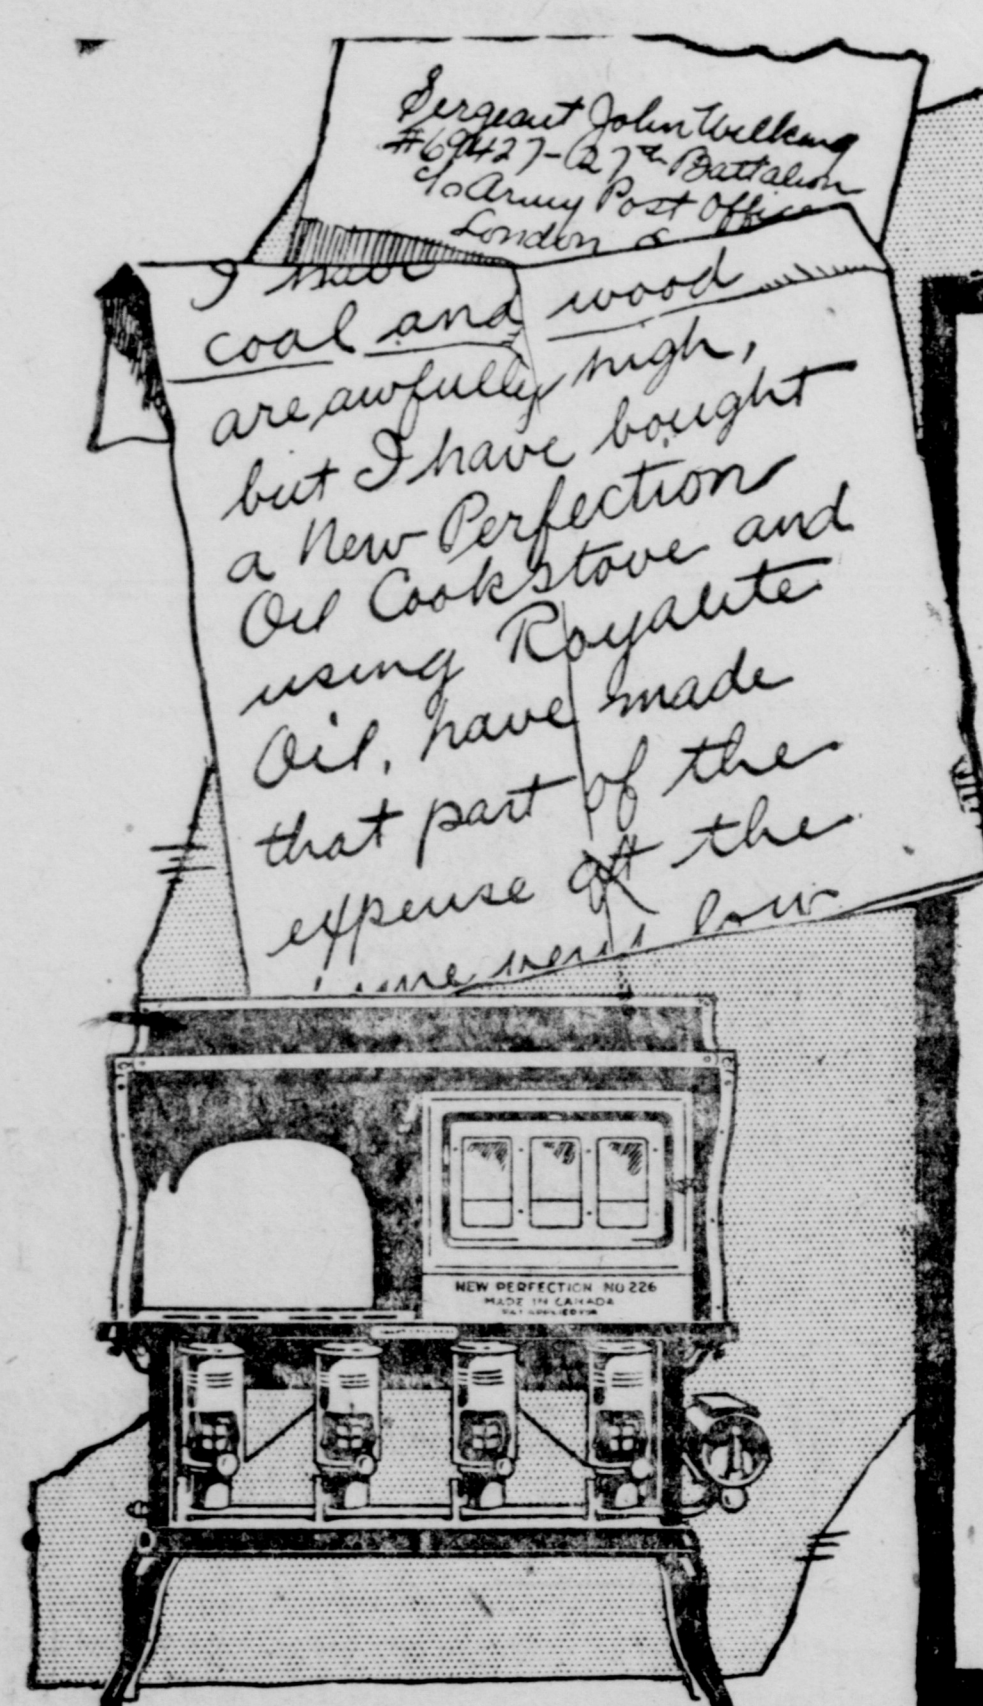 Sergeant John Wilkens
#69427-27th Battalion
c/o Army Post Office
London
I have
coal and wood
are awfully high,
but I have bought
a New Perfection
Oil Cookstove and
using Royalite
Oil, have made
that part of the
expense at the
very low
NEW PERFECTION NO 226
MADE IN CANADA
PAT APPLIED FOR